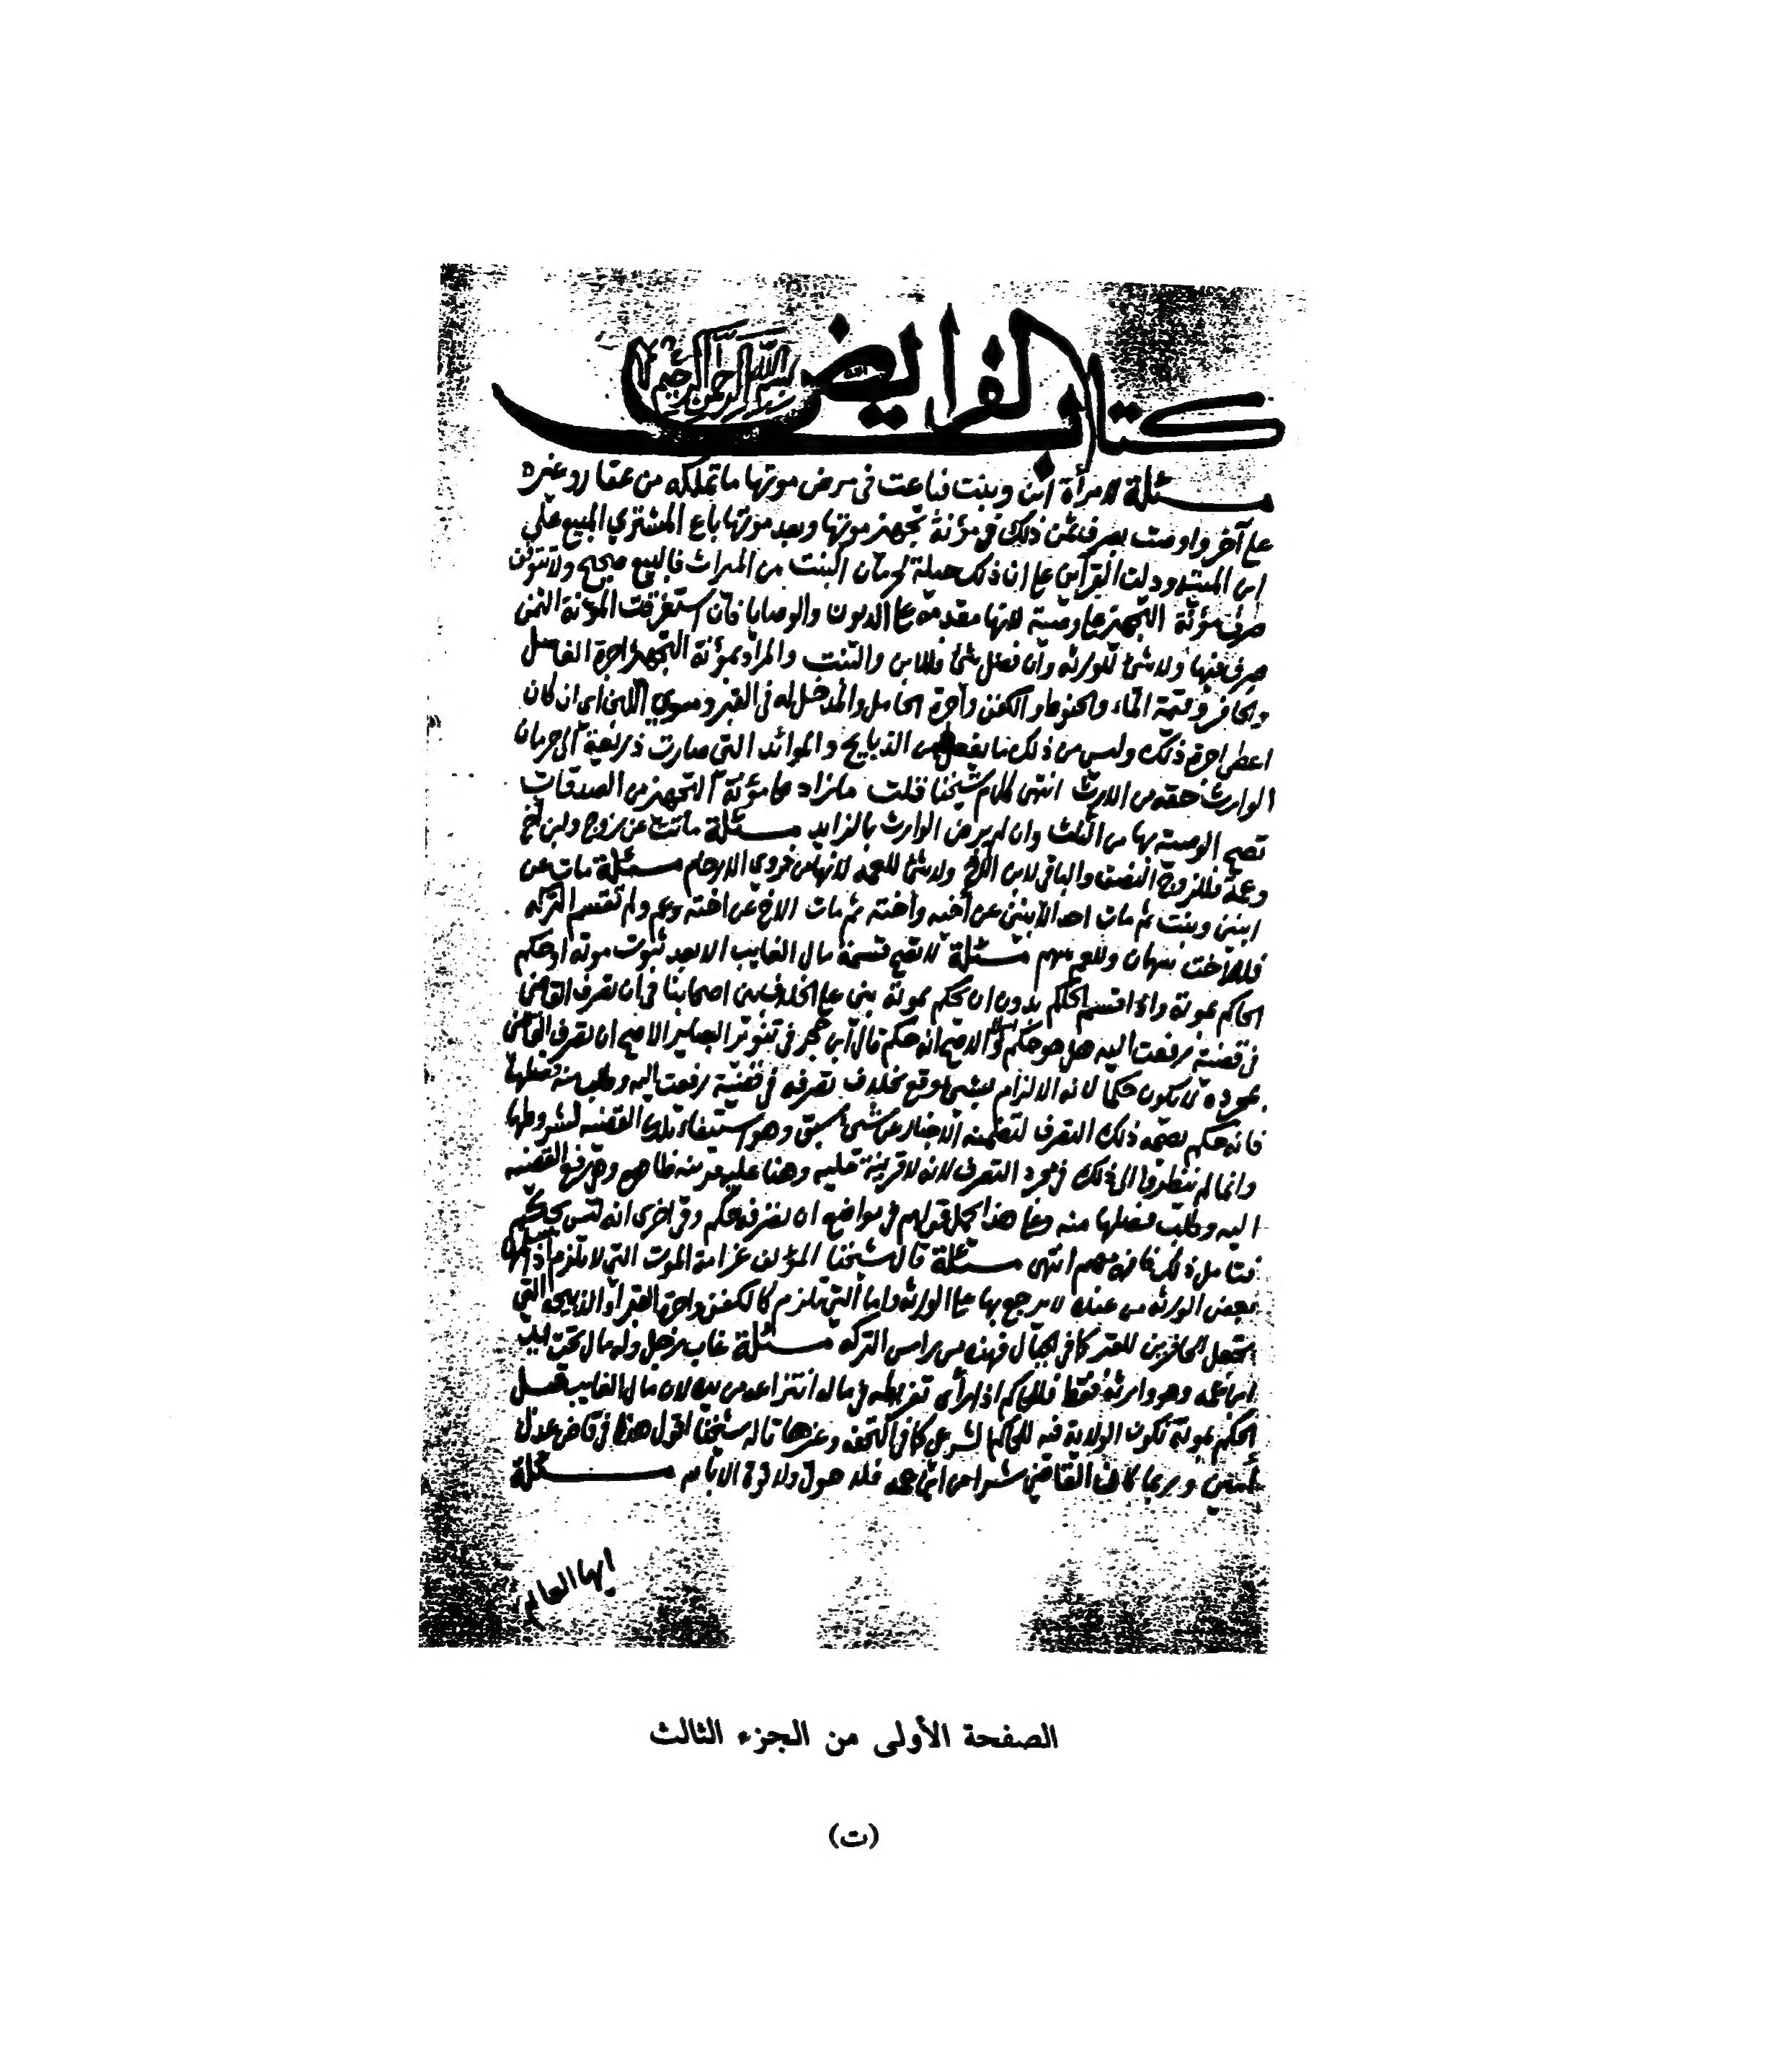 كتاب الفرايض
بسم الله الرحمن الرحيم
مسئلة لامرأة ابن وبنت فباعت في مرض موتها ما تملكه من عقار وغيره
على آخر واوصت بصرف ثمن ذلك في مؤنة تجهيز موتها وبعد موتها باع المشتري المبيع على
ابن الميته ودلت القرآين على ان ذلك حيلة لحرمان البنت من الميراث فالبيع صحيح ولا تتوقف
صرف مؤنة التجهيز على وصية لانها مقدمة على الديون والوصايا فان استغرقت المؤنة الثمن
صرف فيها ولا شئ للورثه وان فضل شئ فللابن والبنت والمراد بمؤنة التجهيز اجرة الغاسل
والحافر وقيمة الماء والحنوط والكفن وأجرة الحامل والمدخل له في القبر ومسوي اللبن اي ان كان
اعطى اجرة ذلك وليس من ذلك ما يفعل من الذبايح والموائد التي صارت ذريعة الى حرمان
الوارث حقه من الارث انتهى كلام شيخنا قلت ما زاد على مؤنة التجهيز من الصدقات
تصح الوصية بها من الثلث وان لم يرض الوارث بالزايد مسئلة ماتت عن زوج وابن أخ
وعمة فللزوج النصف والباقي لابن الاخ ولا شئ للعمه لانها من ذوي الارحام مسئلة مات عن
ابنين وبنت ثم مات احد الابنين عن أخيه وأخته ثم مات الاخ عن اخته وعم ولم تقسم التركه
فللأخت سهمان وللعم سهم مسئلة لا تصح قسمة مال الغايب الا بعد ثبوت موته او حكم
الحاكم بموته واذا اقتسم الحاكم بدون ان يحكم بموته بني على الخلاف بين اصحابنا في أن تصرف القاضي
في قضية رفعت اليه هل هو حكم او لا والاصح انه حكم قال ابن حجر في تنوير البصاير الاصح ان تصرف القاضي
بمجرده لا يكون حكما لانه الالزام بشئ وقع بخلاف تصرفه في قضية رفعت اليه وطلب منه فصلها
فانه حكم بصحة ذلك التصرف لتضمنه الاخبار عن شئ سبق وهو استيفاء تلك القضيه لشروطها
وانما لم ينظروا الى ذلك في مجرد التصرف لانه لا قرينة عليه وهنا عليه قرينه ظاهره وهي رفع القضيه
اليه وطلب فصلها منه وعلى هذا يحمل قولهم في مواضع ان تصرفه حكم وفي اخرى انه ليس بحكم
فتأمل ذلك فانه مهم انتهى مسئلة قال شيخنا المؤلف غرامة الموت التي لا تلزم اذا سلمها
بعض الورثه من عنده لا يرجع بها على الورثه واما التي تلزم كالكفن واجرة القبر أو الذبيحه التي
تجعل للحافرين للقبر كما في الجبال فهذه من راس التركه مسئلة غاب رجل وله مال تحت يد
ابن عمه وهو وارثه فقط فللحاكم اذا رأى تفريطه في ماله انتزاعه من يده لان مال الغايب قبل
الحكم بموته تكون الولاية فيه للحاكم الشرعي كما في التحفه وغيرها قاله شيخنا اقول هذا في قاض عدل
أمين وربما كان القاضي شرا من ابن عمه فلا حول ولا قوة الا بالله مسئلة
ايها العالم
الصفحة الأولى من الجزء الثالث
(ت)